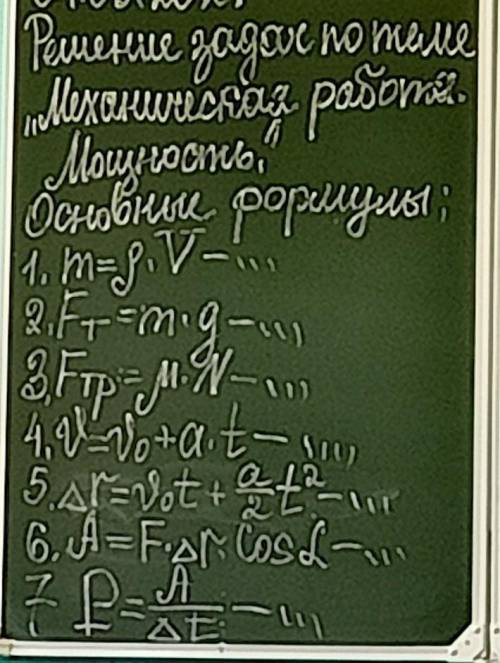 Решение задач по теме
„Механическая работа.
Мощность."
Основные формулы:
1. m=ρ·V-...
2. Fт=m·g-...
3. Fтр=μ·N-...
4. v=v₀+a·t-...
5. Δr=v₀t+a/2 t²-...
6. A=F·Δr·cosα-...
7 P=A/Δt-...